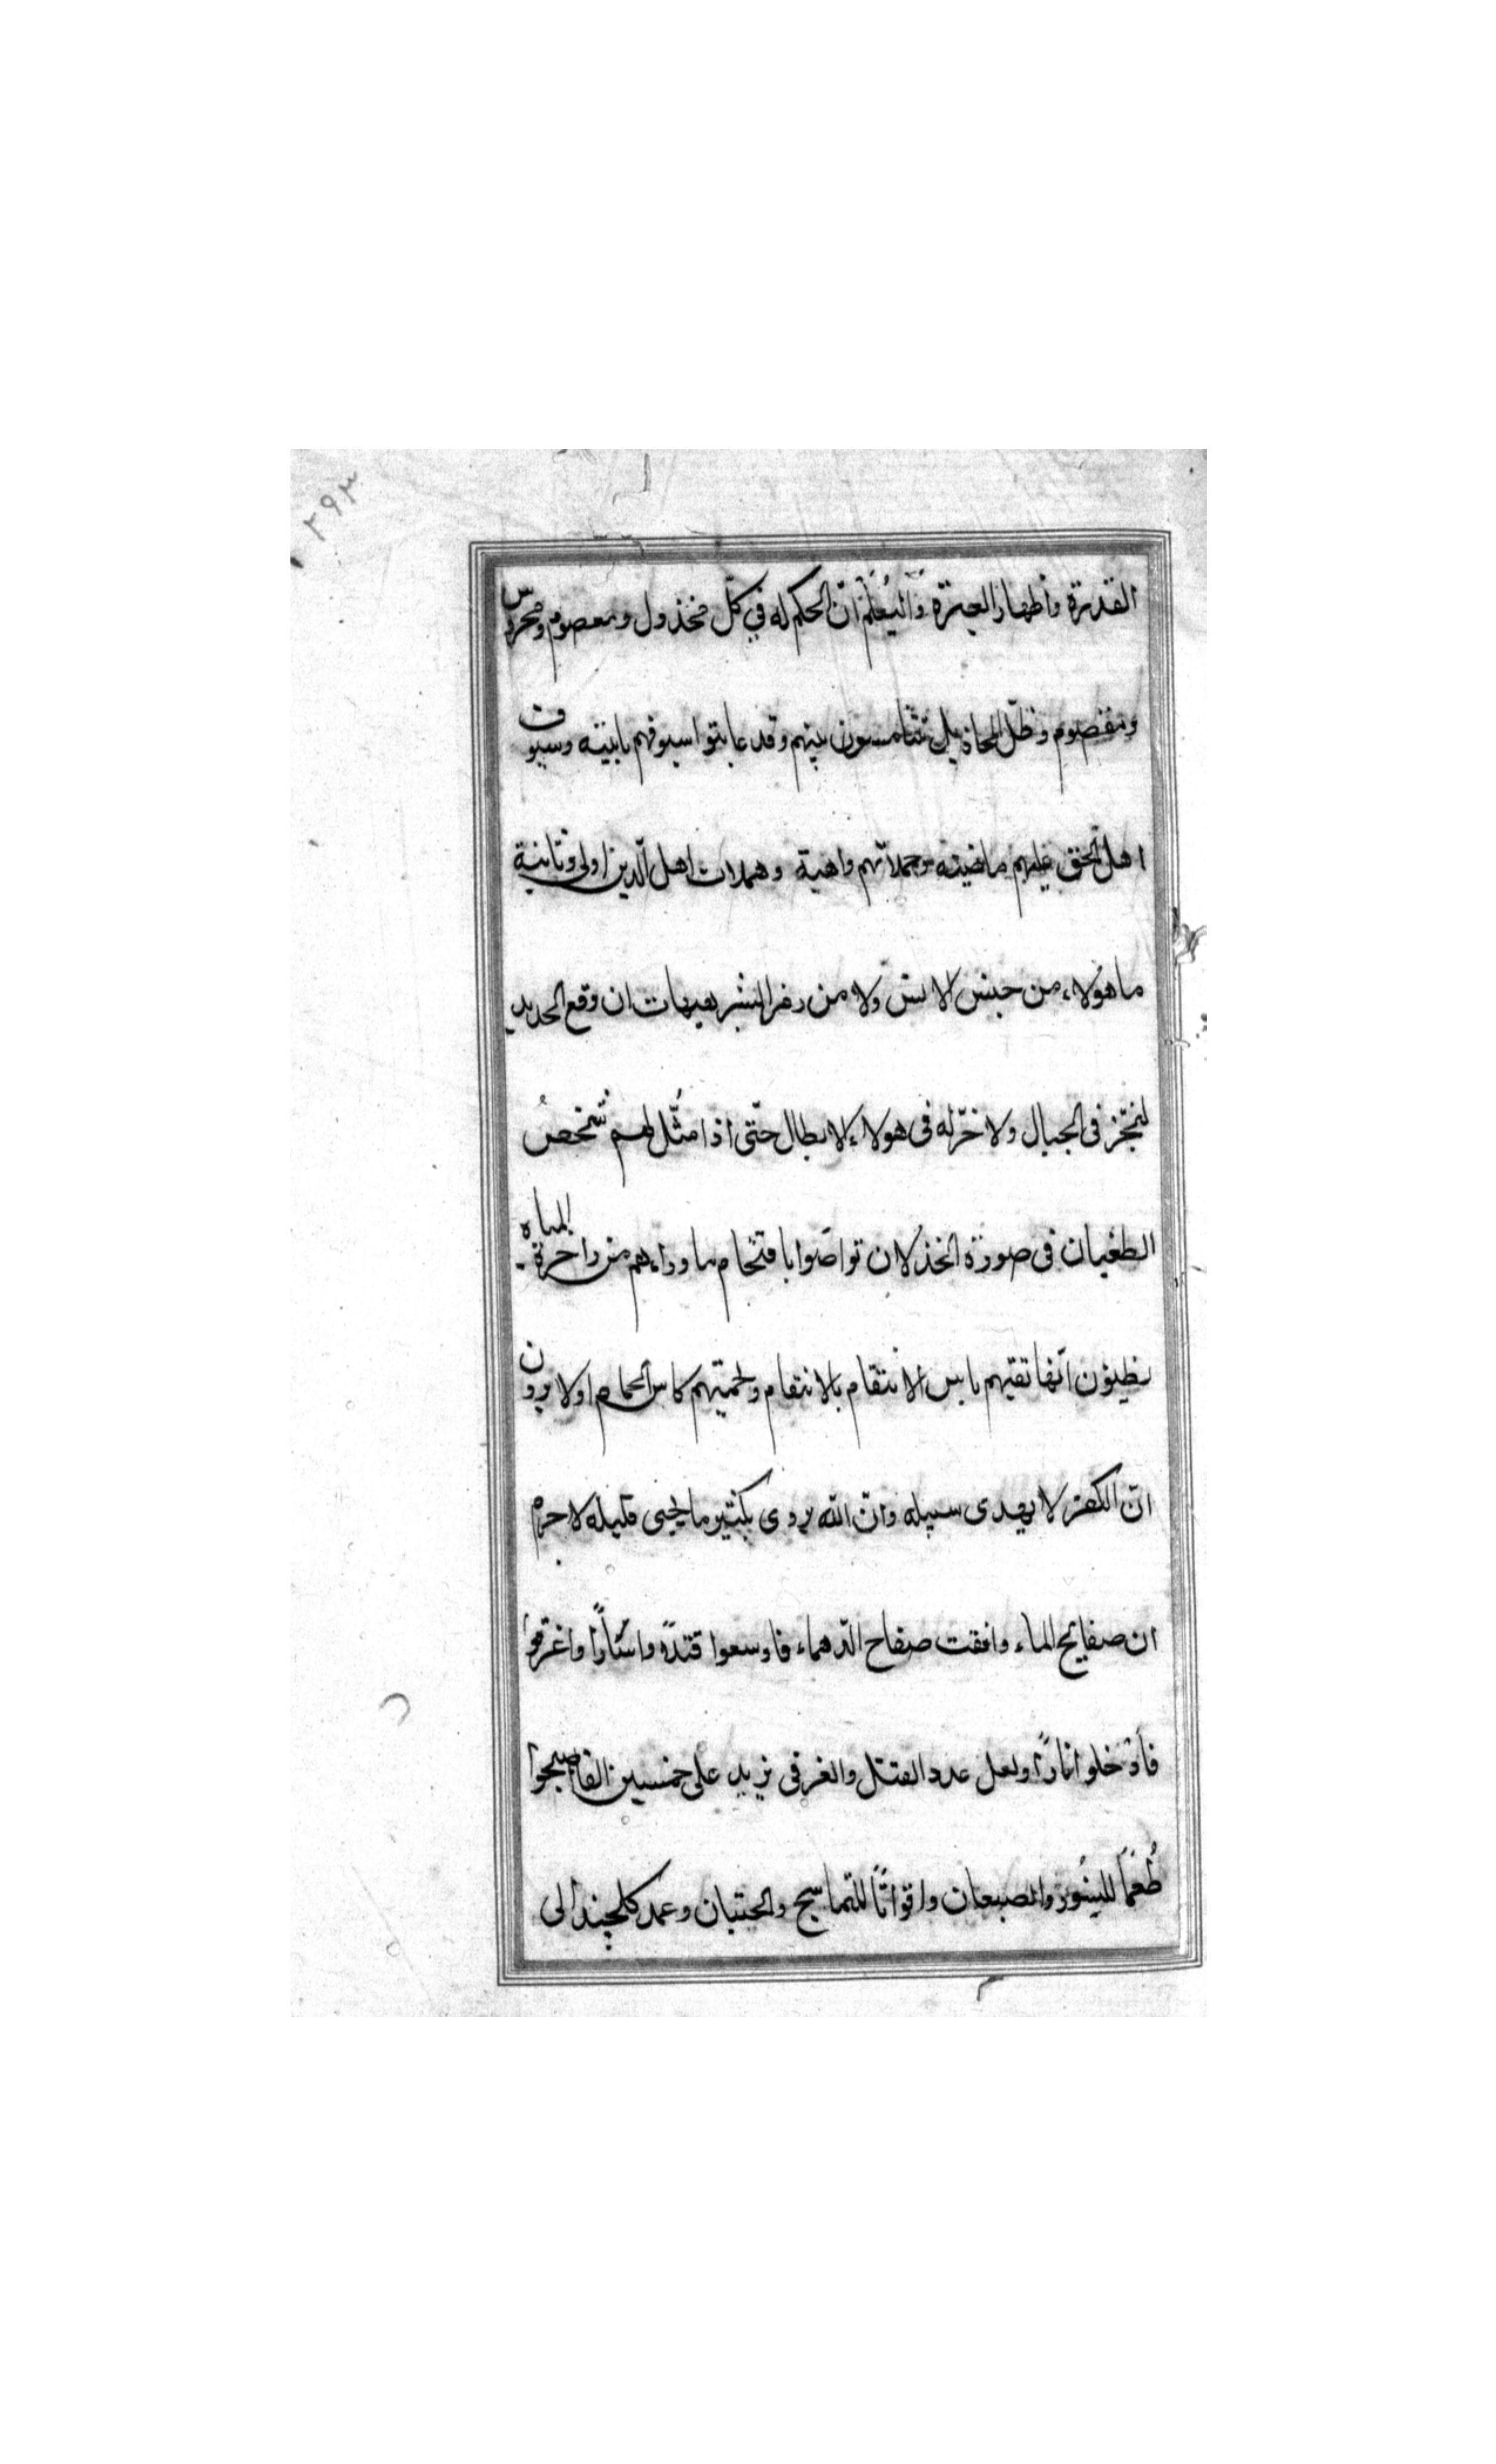 ٢٩٣
القدرة واظهار العبرة وليُعلم انّ الحكم له في كلّ مخذول ومعصوم ومحروس
ومقصوم وظلّ المخاذيل يتهامسون بينهم وقد عاينوا سيوفهم نابية وسيوف
اهل الحق عليهم ماضية وحملاتهم واهية وحملات اهل الدين اولى وثانية
ما هؤلاء من جنس الانس ولا من البشر هيهات ان وقع الحديد
فى الجبال ولا له فى هولاء الابطال حتّى اذا مُثّل لهم شخصُ
الطغيان فى صورة الخذلان تواصوا باقتحام ما وراءهم من زاخرة المياه
يظنون انها تقيهم باس الانتقام وتحميهم كاس الحمام اولا يرون
انّ الكفر لا يهدى سبيله وانّ الله يردى بكثير ما يحيى قليله لا جرم
ان صفايح الماء وافقت صفاح الدهماء فاوسعوا قتلاً واسًارا واغرقوا
فأدخلوا نارًا ولعل عدد القتلى والغرقى يزيد على خمسين الفا اصبحوا
طُعمًا للنسور والضبعان واقواتًا للتماسيح والحيتان وعمد كلجند الى